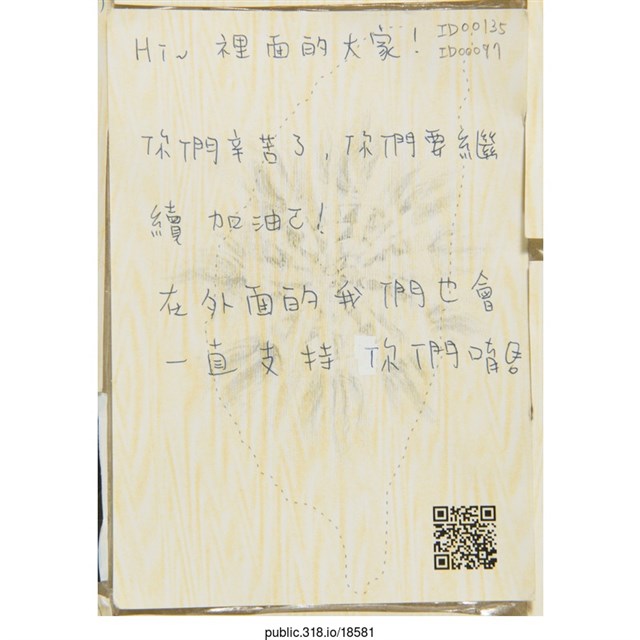 Hi~ 裡面的大家！
ID00135
ID00097
你們辛苦了，你們要繼
續 加油ㄛ！
在外面的我們也會
一直支持 你們唷
public.318.io/18581